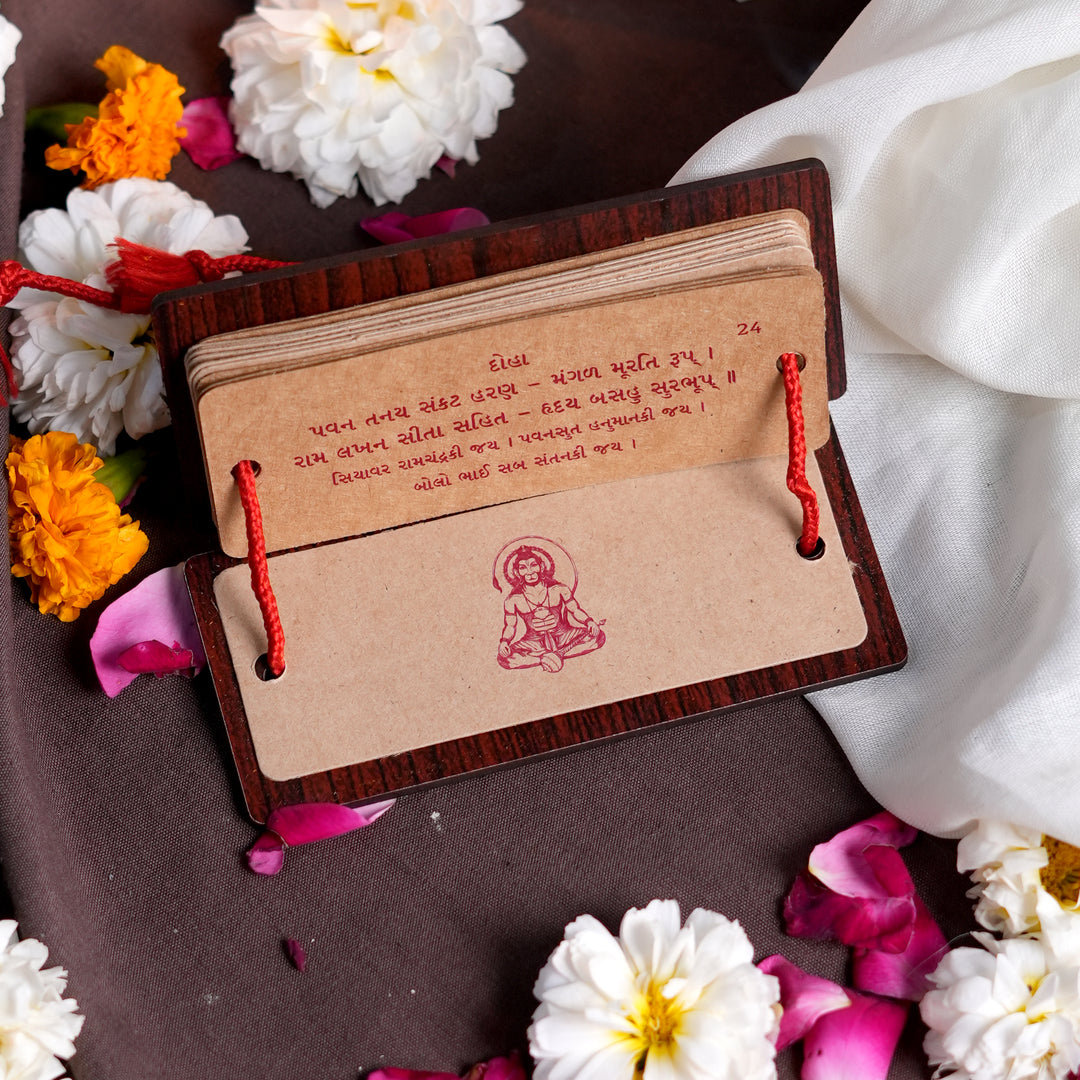 24
દોહા
પવન તનય સંકટ હરણ – મંગળ મૂરતિ રૂપ્ ।
રામ લખન સીતા સહિત – હૃદય બસહુ સુરભૂપ્ ॥
સિયાવર રામચંદ્રકી જય । પવનસુત હનુમાનકી જય ।
બોલો ભાઈ સબ સંતનકી જય ।